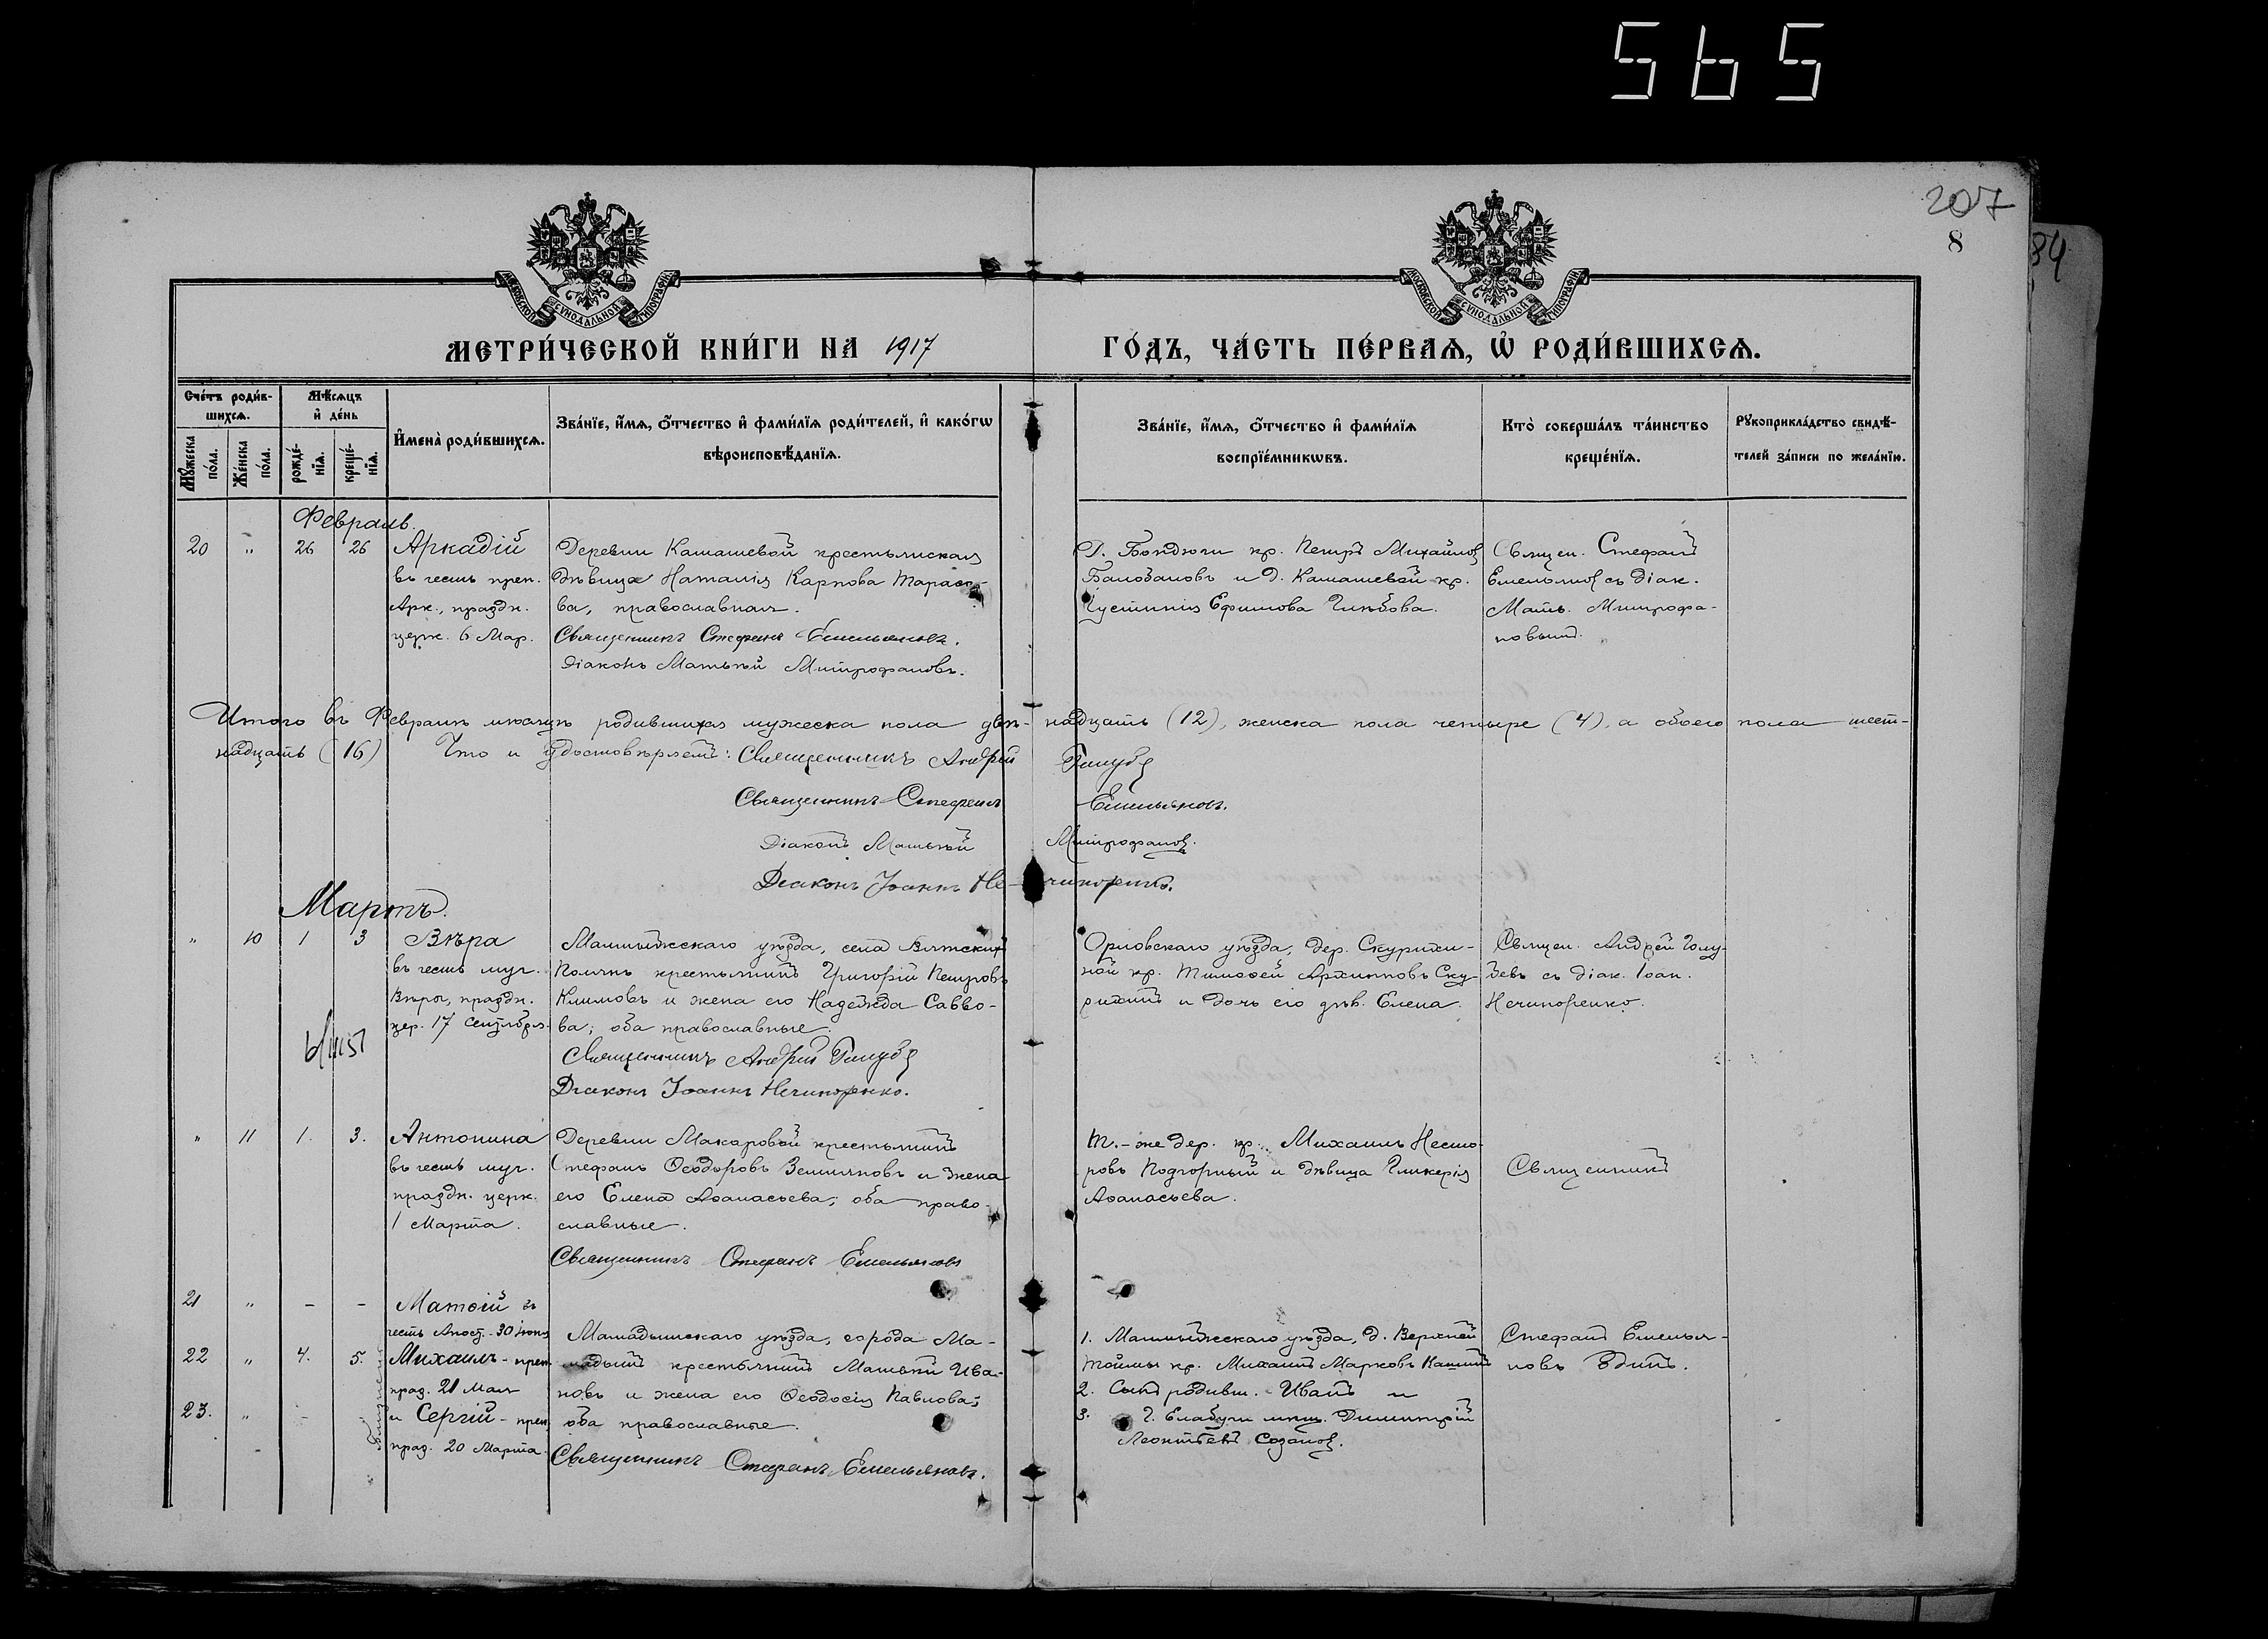 565
207
8
34
МОСКОВСКОЙ СѴНОДАЛЬНОЙ ТИПОГРАФІИ
МОСКОВСКОЙ СѴНОДАЛЬНОЙ ТИПОГРАФІИ
МЕТРИ́ЧЕСКОЙ КНИ́ГИ НА 1917 ГО́ДЪ, ЧА́СТЬ ПЕ́РВАѦ, Ѡ РОДИ́ВШИХСѦ.
Сче́тъ роди́в-
шихсѧ.
Мѣ́сѧцъ
и де́нь
Мꙋ́жеска
по́ла.
Же́нска
по́ла.
рожде́-
нїѧ.
креще́-
нїѧ.
И́мена̀ роди́вшихсѧ.
Зва́нїе, и́мѧ, ѻ́тчество и фами́лїѧ роди́телей, и како́гѡ
вѣроисповѣ́данїѧ.
Зва́нїе, и́мѧ, ѻ́тчество и фами́лїѧ
воспрїе́мникѡвъ.
Кто̀ соверша́лъ та́инство
креще́нїѧ.
Рꙋкоприкла́дство свидѣ́-
телей за́писи по жела́нїю.
Февраль.
20 " 26 26 Аркадій
въ честь преп.
Арк., праздн.
церк. 6 Мар.
Деревни Камашевой крестьянская
дѣвица Наталія Карпова Тарасо-
ва, православная.
Священникъ Стефанъ Емельяновъ.
Діаконъ Матвѣй Митрофановъ.
Д. Бондюги кр. Петръ Михайлов
Балобановъ и д. Камашевой кр.
Іустинія Ефимова
Священ. Стефанъ
Емельянов съ діак.
Матв. Митрофа-
новымъ.
Итого въ Февралѣ мѣсяцѣ родившихся мужеска пола двѣ-надцать (12), женска пола четыре (4), а обоего пола шест-
надцать (16) Что и удостовѣряемъ: Священникъ Андрей Голубе
Священникъ Стефанъ Емельяновъ.
Діаконъ Матвѣй Митрофанов.
Діаконъ Іоаннъ Не-чипоренко.
Мартъ.
" 10 1 3 Вѣра
въ честь муч.
Вѣры, праздн.
цер. 17 Сентября.
Малмыжскаго уѣзда, села Вятскихъ
Полянъ крестьянинъ Григорій Петровъ
Климовъ и жена его Надежда Савво-
ва; оба православные.
Священникъ Андрей Голубе
Діаконъ Іоаннъ Нечипоренко.
Орловскаго уѣзда, дер. Скурихи-
ной кр. Тимоѳей Архиповъ Ску-
рихинъ и дочь его дѣв. Елена.
Священ. Андрей Голу-
бевъ съ діак. Іоан.
Нечипоренко.
" 11 1. 3. Антонина
въ честь муч.
праздн. церк.
1 Марта.
Деревни Макаровой крестьянинъ
Стефанъ Ѳеодоровъ Земляновъ и жена
его Елена Аѳанасьева; оба право-
славные.
Священникъ Стефанъ Емельяновъ
Т.-же дер. кр. Михаилъ Несто-
ровъ Подгорный и дѣвица Гликерія
Аѳанасьева.
Священникъ
21 " - - Матѳій въ
честь Апост. - 30 іюня
22 " 4. 5. Михаилъ - преп.
праз. 21 Мая
23. " - и Сергій - преп.
праз. 20 Марта.
Близнецы
Мамадышскаго уѣзда, города Ма-
мадышъ крестьянинъ Матвѣй Ива-
новъ и жена его Ѳеодосія Павлова;
оба православные.
Священникъ Стефанъ Емельяновъ.
1. Малмыжскаго уѣзда, д. Верхней
Тоймы кр. Михаилъ Марковъ
2. Сынъ родивш. Иванъ и
3. Г. Елабуги мѣщ. Димитрій
Леонтьевъ
Стефанъ Емелья-
новъ Единъ.